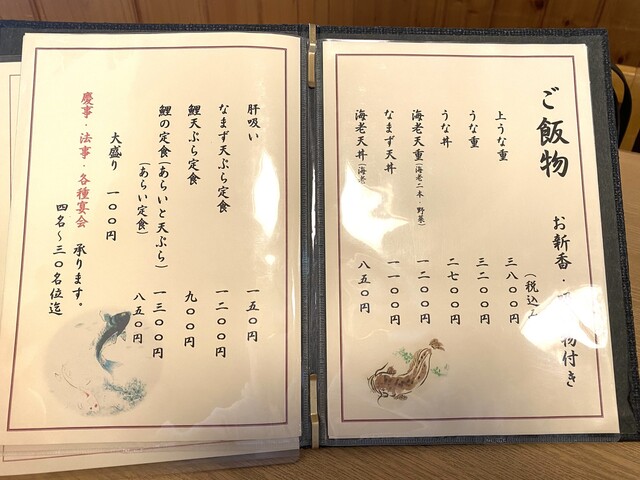 ご飯物
お新香・ 物付き
(税込み
上うな重 三八〇〇円
うな重 三二〇〇円
うな丼 二七〇〇円
海老天重(海老二本 野菜) 一二〇〇円
なまず天丼 一一〇〇円
海老天丼(海老 八五〇円
肝吸い 一五〇円
なまず天ぷら定食 一二〇〇円
鯉天ぷら定食 九〇〇円
鯉の定食(あらいと天ぷら) 一三〇〇円
(あらい定食) 八五〇円
大盛り 一〇〇円
慶事・法事・各種宴会 承ります。
四名~三〇名位迄